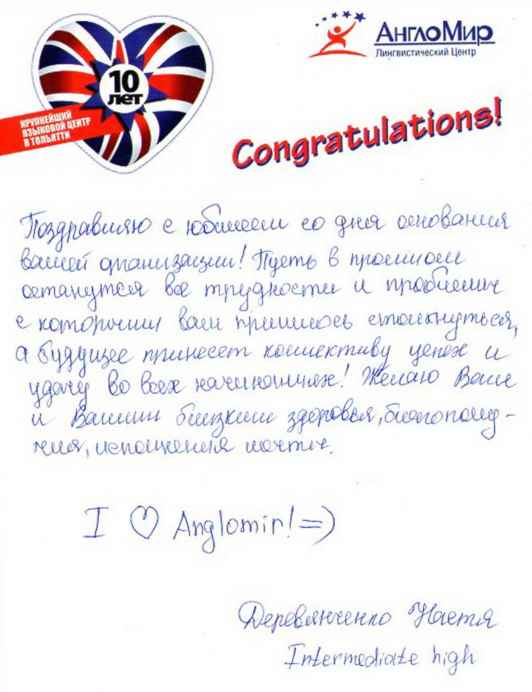 10
ЛЕТ
КРУПНЕЙШИЙ
ЯЗЫКОВОЙ ЦЕНТР
В ТОЛЬЯТТИ
АнглоМир
Лингвистический Центр
Congratulations!
Поздравляю с юбилеем со дня основания
вашей организации! Пусть в прошлом
останутся все трудности и проблемы
с которыми вам пришлось столкнуться,
а будущее принесет коллективу успех и
удачу во всех начинаниях! Желаю Вам
и Вашим близким здоровья, благополу-
чия, исполнения мечты.
I ♡ Anglomir! =)
Деревянченко Настя
Intermediate high